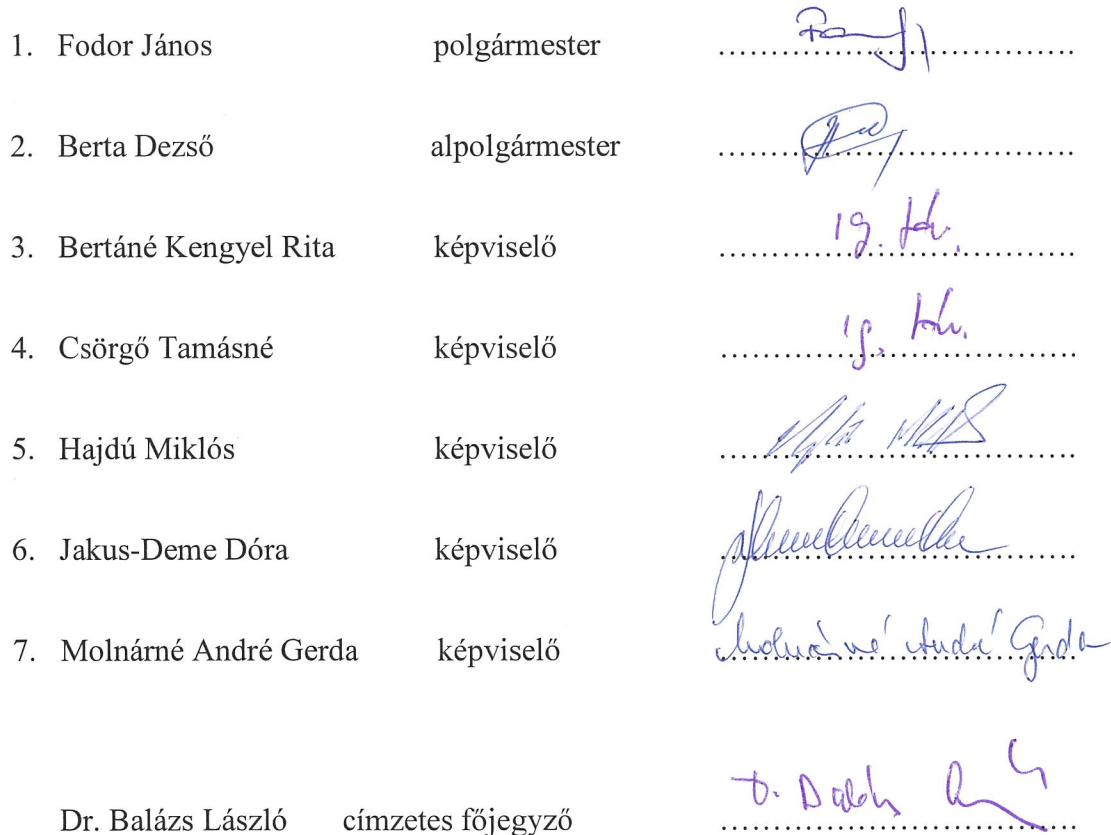 1. Fodor János polgármester
2. Berta Dezső alpolgármester
3. Bertáné Kengyel Rita képviselő ig. táv.
4. Csörgő Tamásné képviselő ig. táv.
5. Hajdú Miklós képviselő
6. Jakus-Deme Dóra képviselő
7. Molnárné André Gerda képviselő Molnárné André Gerda
Dr. Balázs László címzetes főjegyző